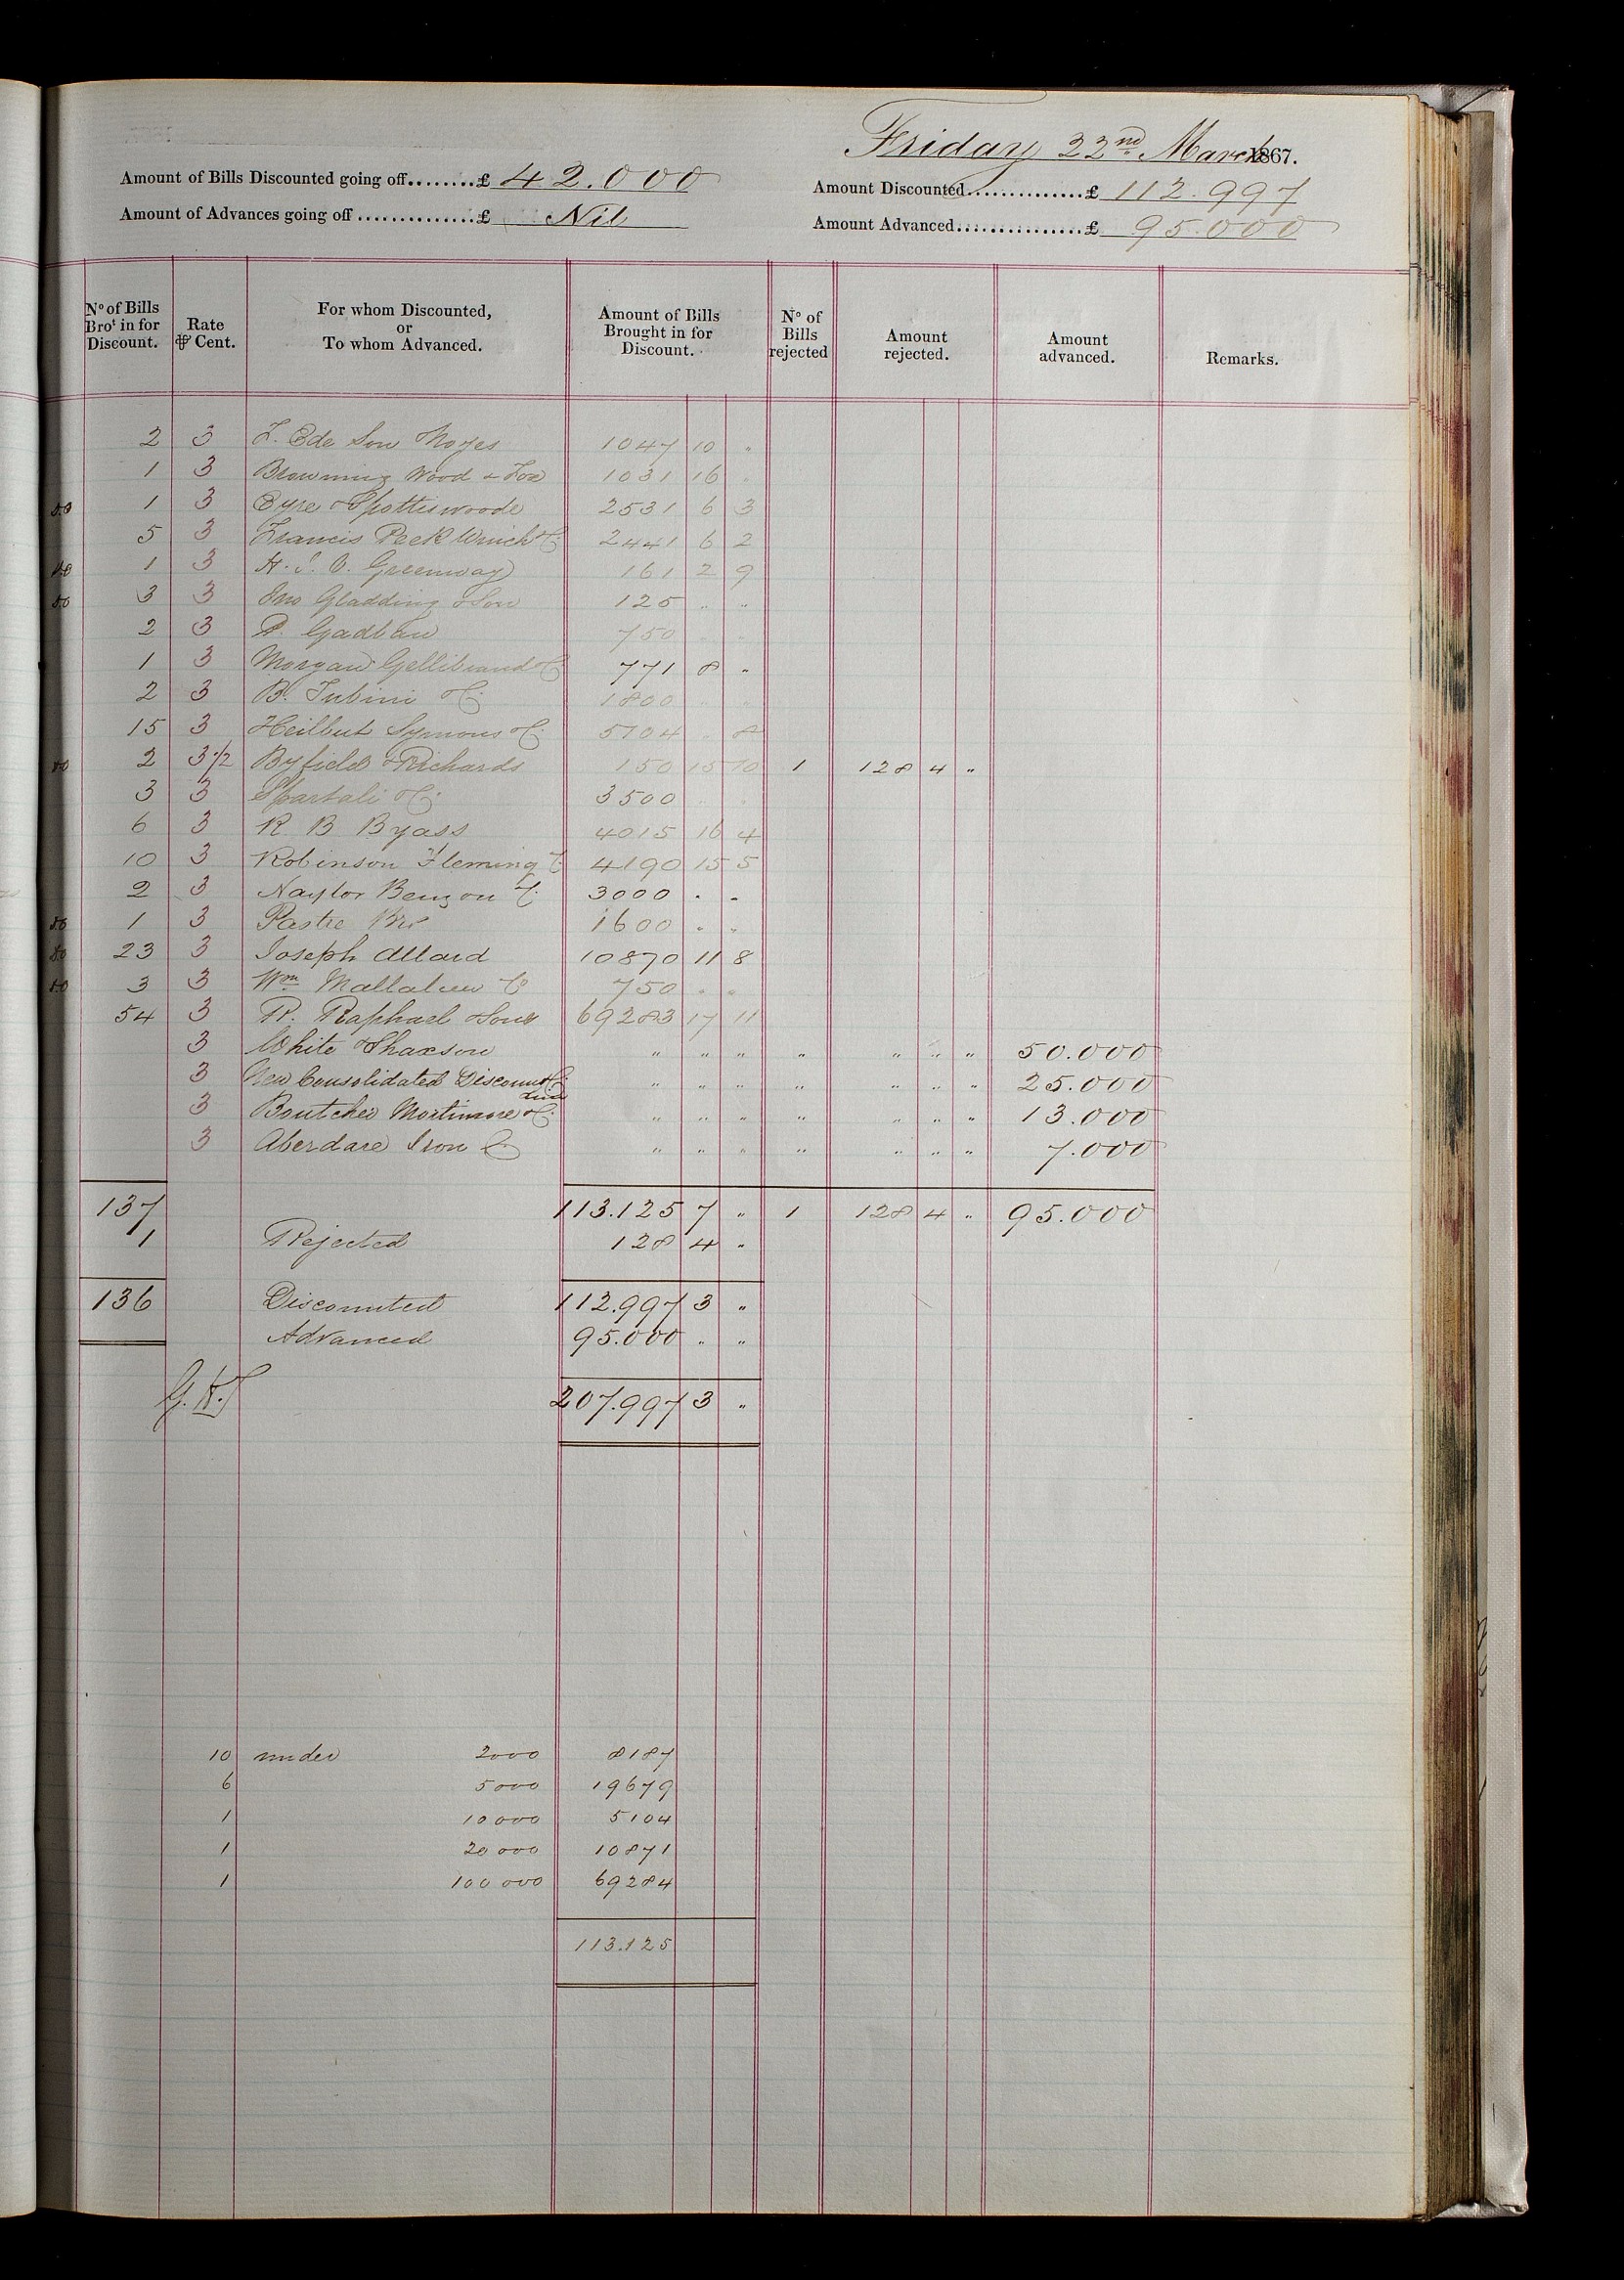 Friday 22nd March 1867.
Amount of Bills Discounted going off........£ 42.000
Amount Discounted...............£ 112.997
Amount of Advances going off ..............£ Nil
Amount Advanced................£ 95.000
No of Bills Brot in for Discount. Rate ⅌ Cent. For whom Discounted, or To whom Advanced. Amount of Bills Brought in for Discount. No of Bills rejected Amount rejected. Amount advanced. Remarks.
2 3 F. Ede Son Noyes 1047 10 "
1 3 Browning Wood & Fox 1031 16 "
1 3 Eyre & Spottiswoode 2531 6 3
5 3 Francis Peek Winch & Co 2441 6 2
1 3 Greenway 161 2 9
3 3 Jno Gladding & Son 125 " "
2 3 P. Gadban 750 " "
1 3 Morgan Gellibrand & Co 771 8 "
2 3 B. Tubini & Co 1800 " "
15 3 Heilbut Symons & Co 5104 " 8
2 3 1/2 Byfield & Richards 150 15 10 1 128 4 "
3 3 Spartali & Co 3500 " "
6 3 R B Byass 4015 16 4
10 3 Robinson Fleming & Co 4190 15 5
2 3 Naylor Benzon & Co 3000 " "
1 3 Pastre Bros 1600 " "
23 3 Joseph Allard 10870 11 8
3 3 Wm Mallalieu & Co 750 " "
54 3 R. Raphael & Sons 69283 17 11
3 White & Shaxson " " " " " " " 50.000
3 New Consolidated Discount Co " " " " " " " 25.000
3 Boutcher Mortimore & Co " " " " " " " 13.000
3 Aberdare Iron Co " " " " " " " 7.000
137 113.125 7 " 1 128 4 " 95.000
1 Rejected 128 4 "
136 Discounted 112.997 3 "
Advanced 95.000 " "
207.997 3 "
10 under 2000 8187
6 5000 19679
1 10000 5104
1 20000 10871
1 100000 69284
113.125